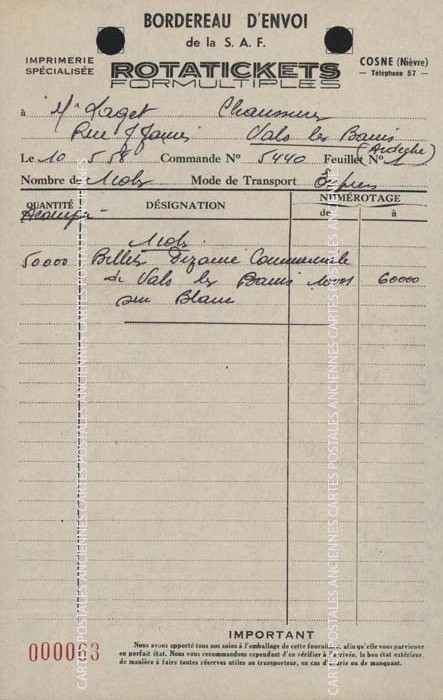 BORDEREAU D'ENVOI
de la S. A. F.
IMPRIMERIE
SPÉCIALISÉE
ROTATICKETS
FORMULTIPLES
COSNE (Nièvre)
— Téléphone 57 —
à Mr Laget Chaussures
Rue J Jaurès Vals les Bains
(Ardèche)
Le 10 5 58 Commande No 5440 Feuillet No 1
Nombre de 1 colis Mode de Transport Express
QUANTITÉ DÉSIGNATION NUMÉROTAGE
de à
Acompte -
1 colis
50000 Billets Dizaine Commerciale
de Vals les Bains 10001 60000
sur Blanc
IMPORTANT
Nous avons apporté tous nos soins à l'emballage de cette fourniture, afin qu'elle vous parvienne
en parfait état. Nous vous recommandons cependant d'en vérifier à l'arrivée, le bon état extérieur,
de manière à faire toutes réserves utiles au transporteur, en cas d'avarie ou de manquant.
000063
CARTES POSTALES ANCIENNES CARTES POSTALES ANCIENNES
CARTES POSTALES ANCIENNES CARTES POSTALES ANCIENNES